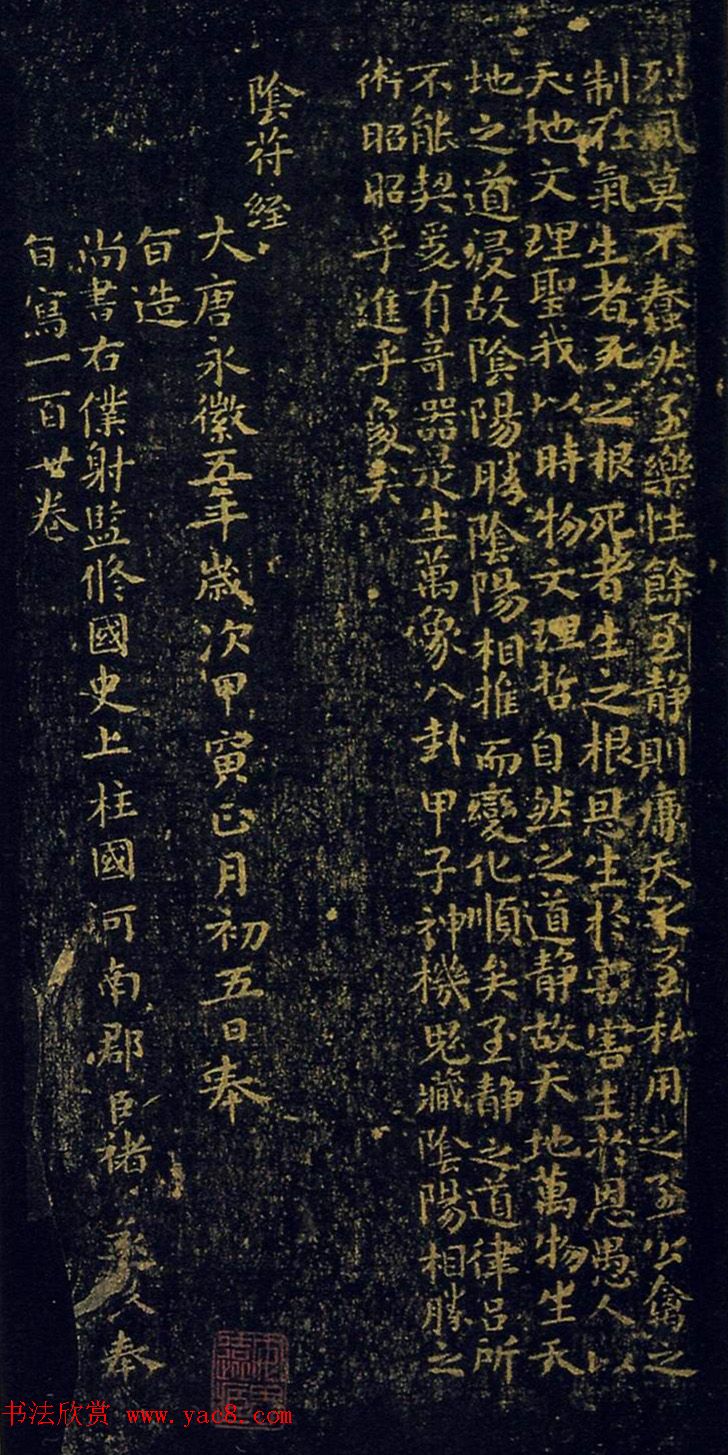 烈風莫不蠢然至樂性餘至靜則廉天之至私用之至公禽之
制在氣生者死之根死者生之根恩生於害害生於恩愚人以
天地文理聖我以時物文理哲自然之道靜故天地萬物生天
地之道浸故陰陽勝陰陽相推而變化順矣至靜之道律呂所
不能契爰有奇器是生萬象八卦甲子神機鬼藏陰陽相勝之
術昭昭乎進乎象矣
陰符經
大唐永徽五年歲次甲寅正月初五日奉
旨造
尚書右僕射監修國史上柱國河南郡臣褚遂良奉
旨寫一百廿卷
书法欣赏 www.yac8.com